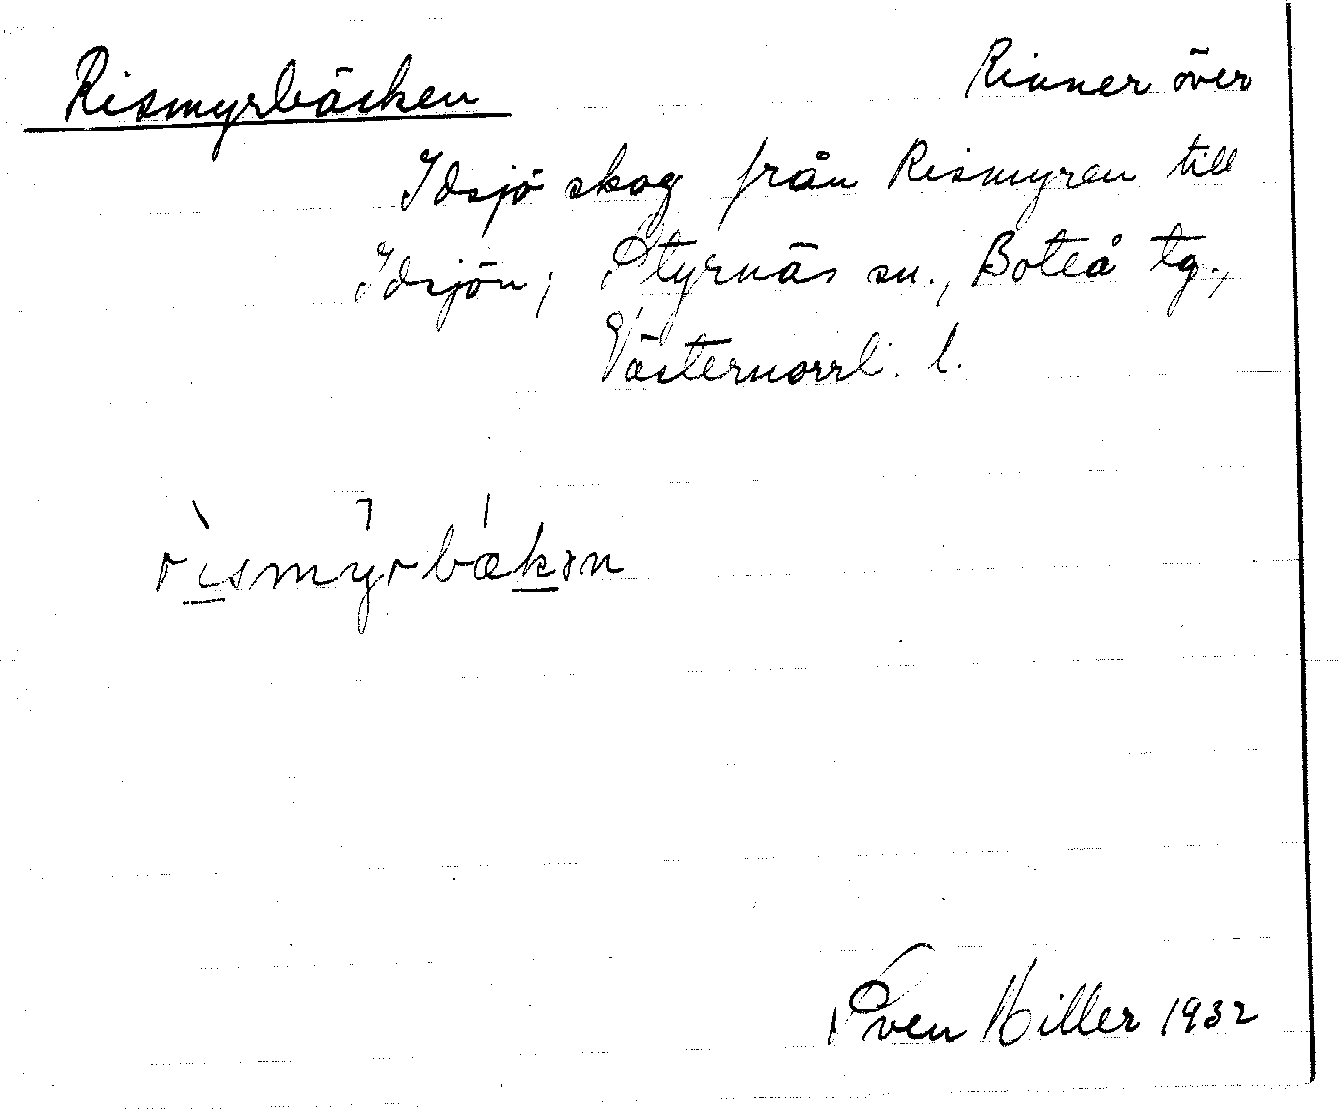 Rismyrbäcken Rinner över
Idsjö skog från Rismyren till
Idsjön; Styrnäs sn., Boteå tg.,
Västernorrl. l.
rismyrbækən
Sven Hiller 1932